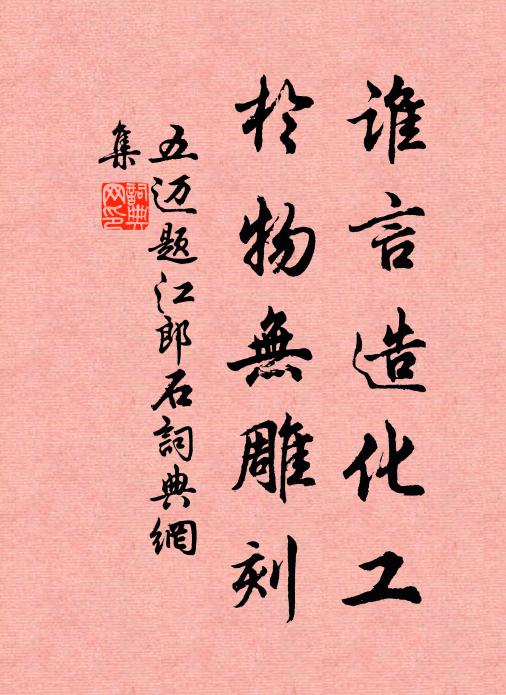 谁言造化工
於物無雕刻
五迈题江郎石詞典網
集
詞典
网印